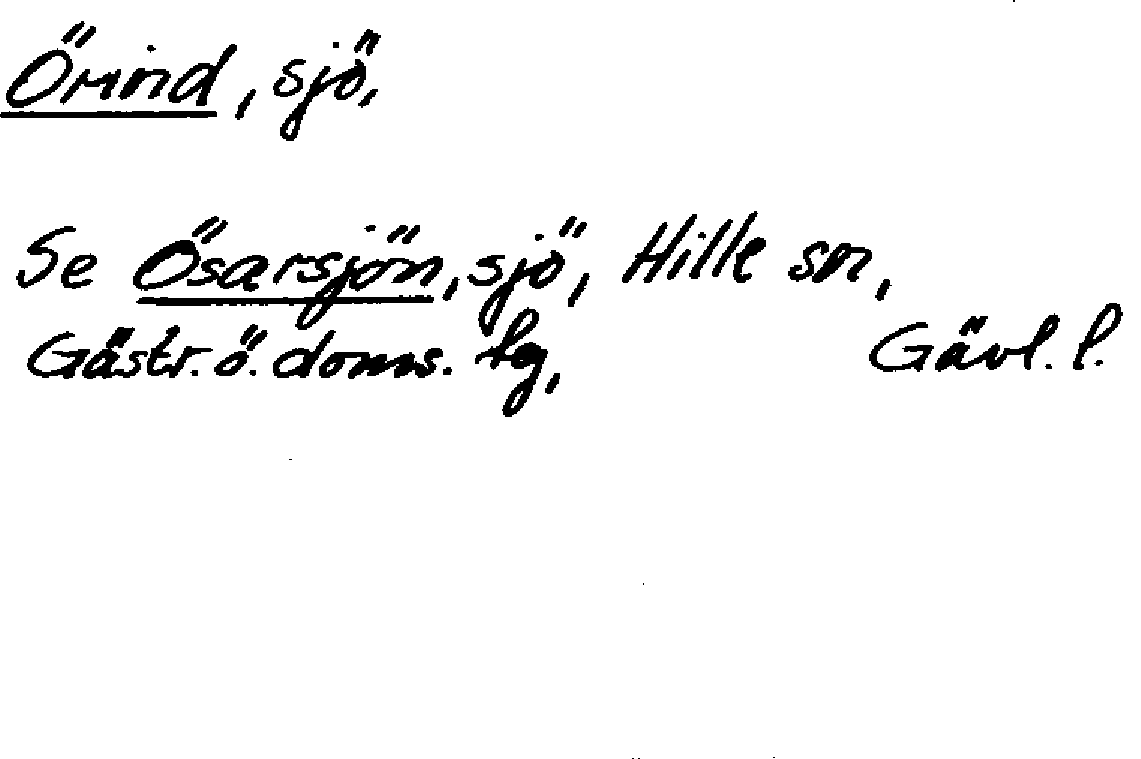 Örind, sjö,
Se Ösarsjön, sjö, Hille sn,
Gästr. ö. doms. tg, Gävl. l.